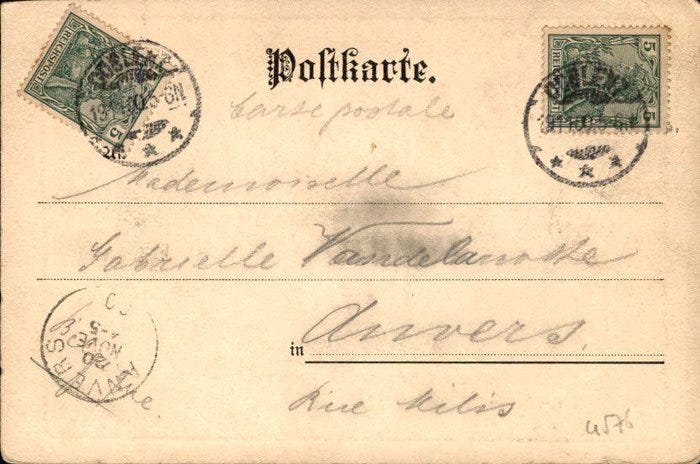 REICHSPOST
5
COBLENZ
Postkarte.
5 5
COBLENZ
Carte postale
Mademoiselle
Gabrielle Vandelanotte
in Anvers
Rue Milis
ANVERS
NOVE
20
4576